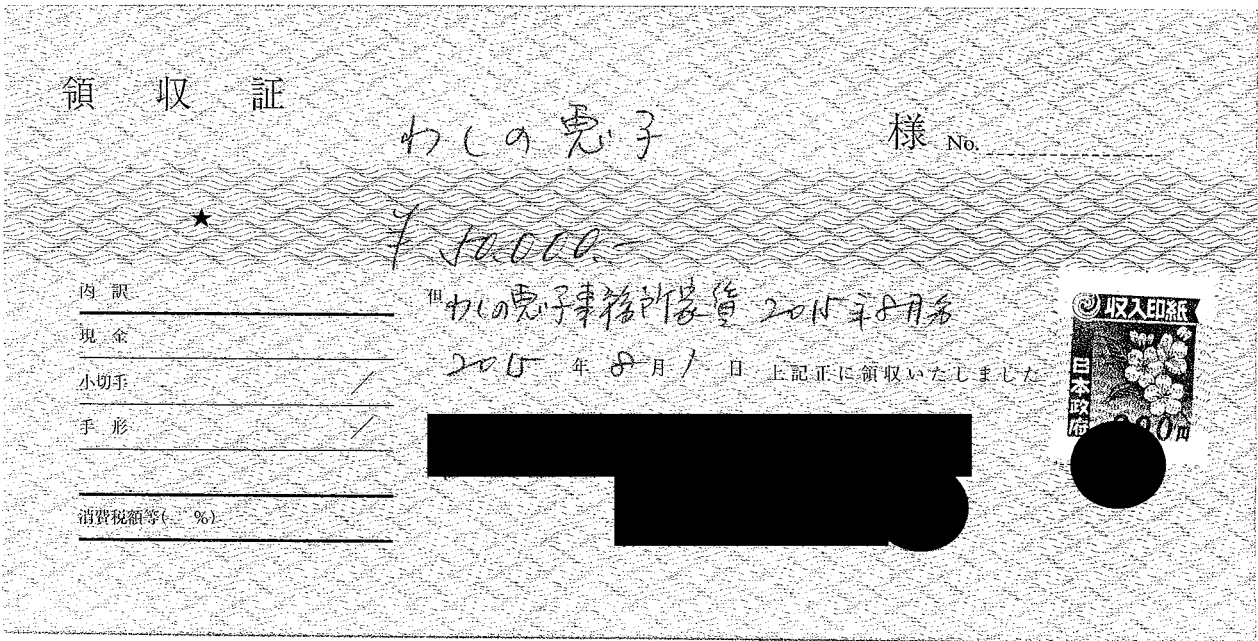 領 収 証
わしの恵子 様 No.
★ ¥ 50,000.-
但 わしの恵子事務所家賃 2015年8月分
2015 年 8 月 1 日 上記正に領収いたしました
内 訳
現 金
小切手 /
手 形 /
消費税額等( %)
収入印紙
日本政府
200円